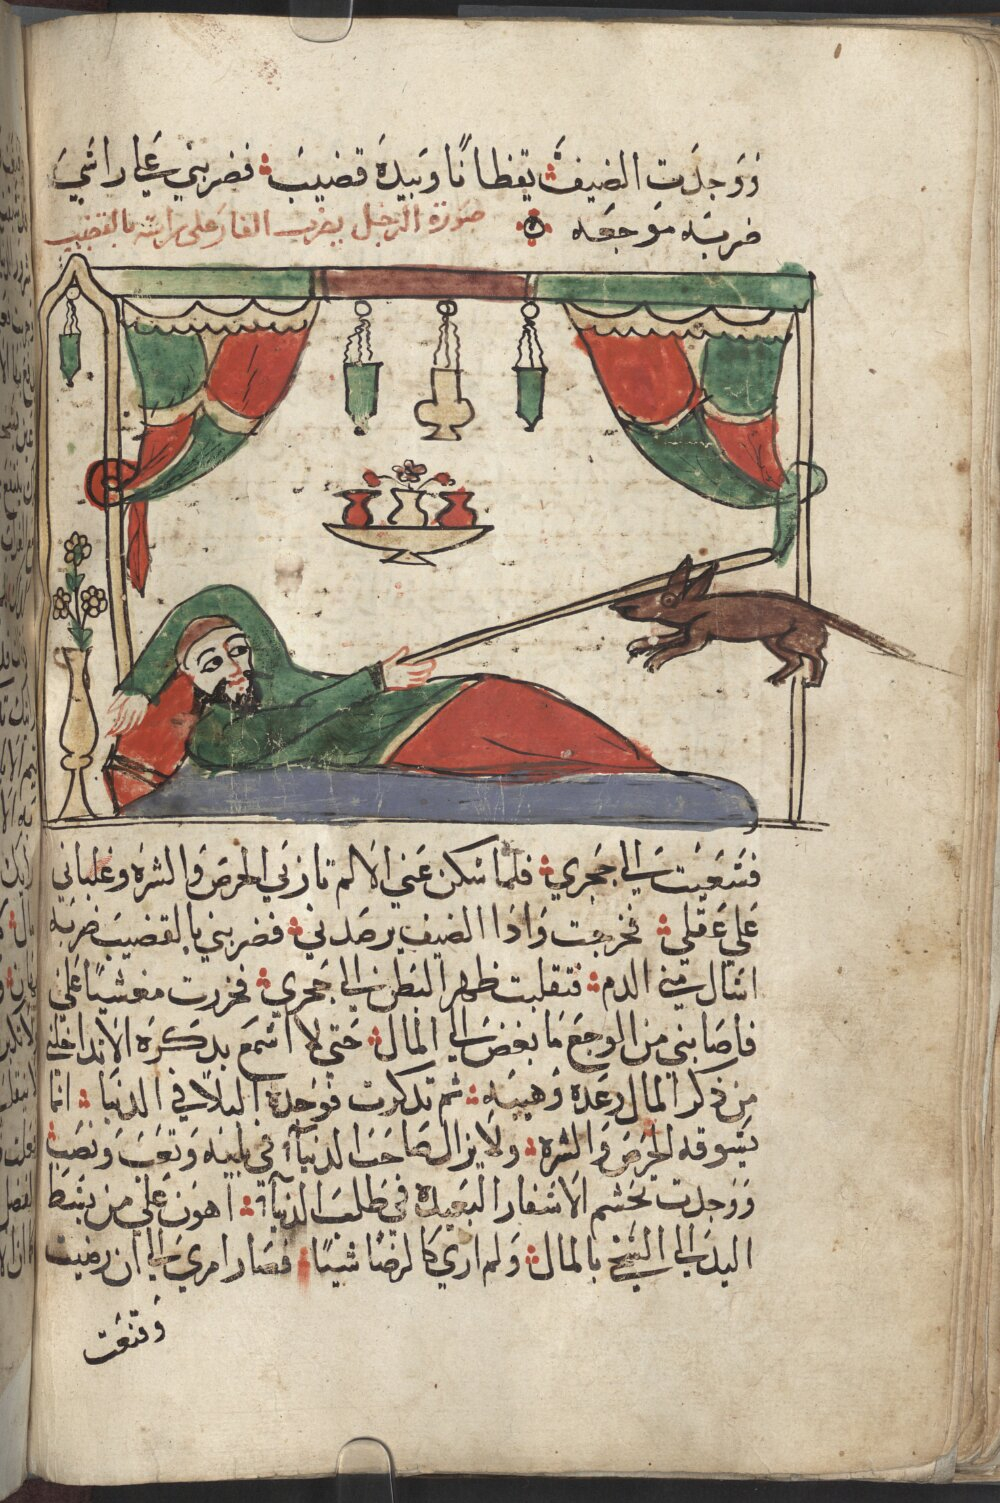 ووجدت الضيف يقظانًا وبيده قضيب فضربني على راسي
ضربه موجعه
صورة الرجل يضرب الفار على راسه بالقضيب
فسعيت الى جحري فلما سكن عني الالم نازعني الحرص والشره وغلباني
على عقلي فخرجت واذا الضيف يرصدني فضربني بالقضيب ضربه
اسال مني الدم فتقلبت ظهرا لبطن الى جحري فخررت مغشيًا على
فاصابني من الوجع ما بغض الى المال حتى لا اسمع بذكره الا تداخلني
من ذكر المال رعده وهيبه ثم تذكرت فوجدة البلا في الدنيا انما
يسوقه الحرص والشره ولا يزال صاحب الدنيا في بليه وتعب ونصب
ووجدت تخشم الاسفار البعيدة في طلب الدنيا اهون علي من بسط
اليد الى السخي بالمال ولم ارى كالرضا شيئًا فصار امري الى ان رضيت
وقنعت